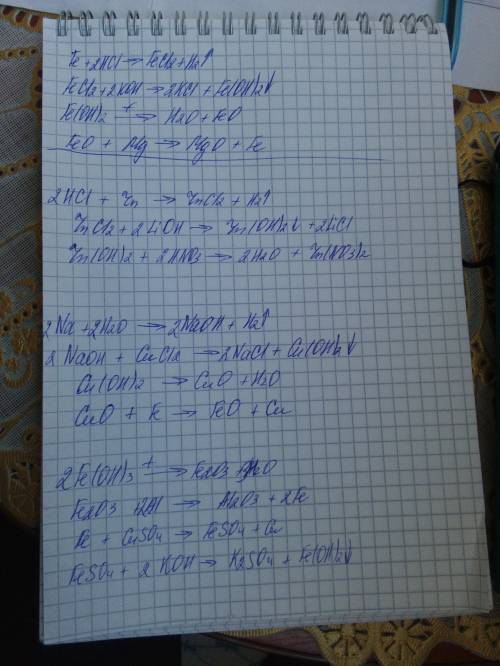 Fe + 2HCl → FeCl2 + H2↑
FeCl2 + 2KOH → 2KCl + Fe(OH)2↓
Fe(OH)2 t→ H2O + FeO
FeO + Mg → MgO + Fe
2HCl + Zn → ZnCl2 + H2↑
ZnCl2 + 2LiOH → Zn(OH)2↓ + 2LiCl
Zn(OH)2 + 2HNO3 → 2H2O + Zn(NO3)2
2Na + 2H2O → 2NaOH + H2↑
2NaOH + CuCl2 → 2NaCl + Cu(OH)2↓
Cu(OH)2 → CuO + H2O
CuO + Fe → FeO + Cu
2Fe(OH)3 t→ Fe2O3 + 3H2O
Fe2O3 + 2Al → Al2O3 + 2Fe
Fe + CuSO4 → FeSO4 + Cu
FeSO4 + 2KOH → K2SO4 + Fe(OH)2↓